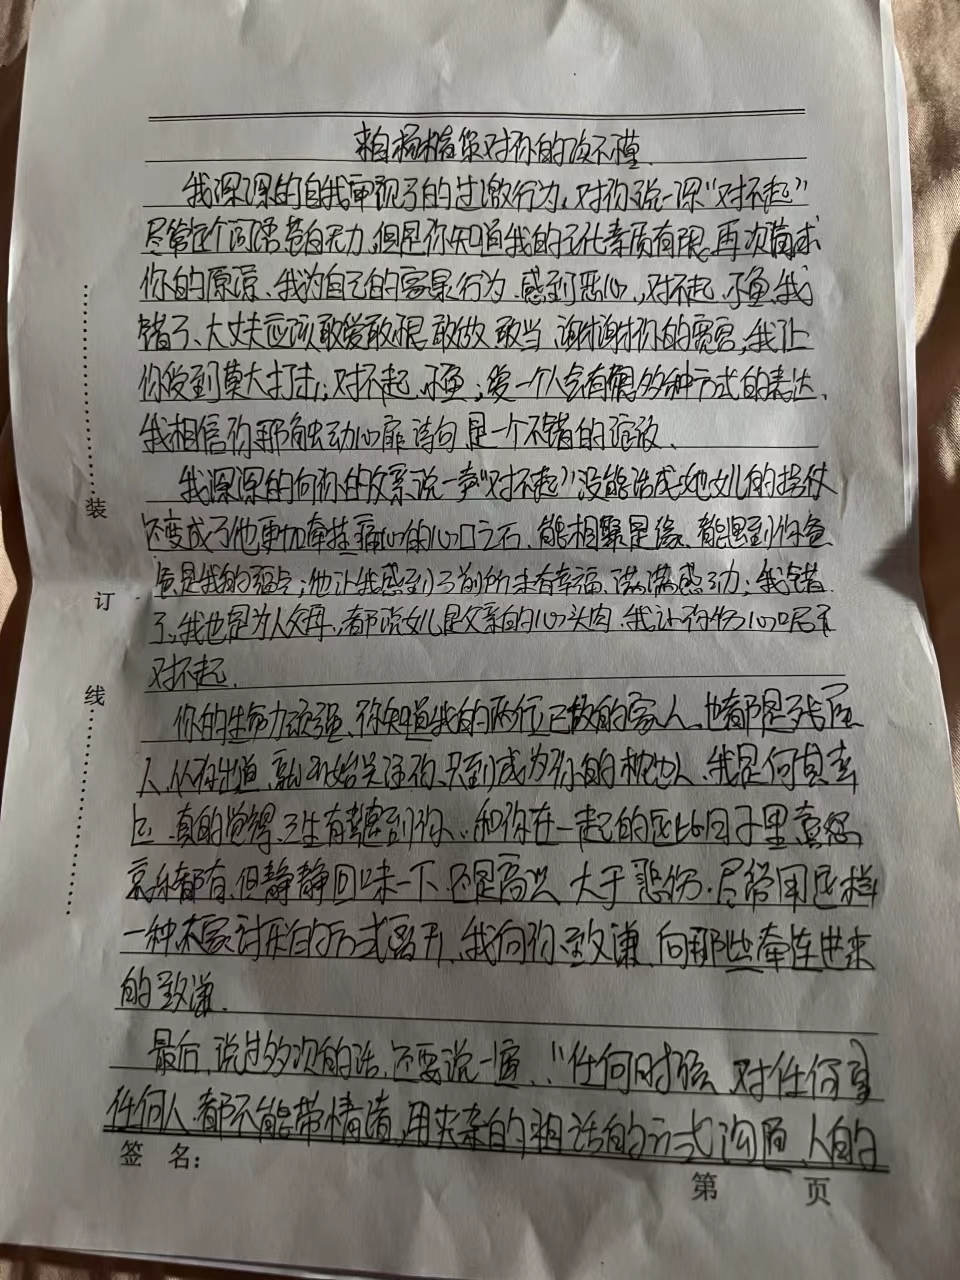 来自杨 对你的 不懂
我深深的自我审视了的过激行为。对你说一深“对不起”
尽管这个词语苍白无力,但是你知道我的文化素质有限、再次 求
你的原谅、我为自己的 行为、感到恶心,对不起、 鱼、我
错了、大丈夫应该敢爱敢恨、敢做 敢当、谢谢你的宽容,我让
你受到莫大打击;对不起、 鱼;爱一个人会有 多种方式的表达、
我相信你那触动心扉诗句、是一个不错的 放、
我深深的向你的父亲说一声“对不起”没能活成她女儿的
还变成了他更加牵挂痛心的心口之石、能相聚是缘、能遇到你鱼
鱼是我的 点;他让我感到了前所未有幸福、满满感动;我错
了、我也是为人父母、都说女儿是父亲的心头肉、我让你伤心
对不起、
你的生命力顽强、你知道我的两位已故的家人、也都是
人、从你出道、就开始关注你、只到成为你的枕边人、我是何其幸
运、真的觉得三生有幸遇到你、和你在一起的这些日子里喜怒
哀乐都有、但静静回味一下、还是高兴 大于悲伤、尽管用这样
一种不 的方式离开、我向你致谦、向那些牵连进来
的致谦、
最后、说过多次的话、还要说一遍、“任何时候、对任何事
任何人、都不能带情绪,用 的 话的方式沟通、人的
装
订
线
签 名:
第 页